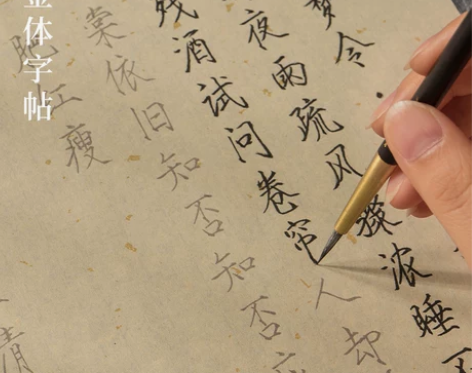 梦令
夜雨疏风骤浓睡不
残酒试问卷帘人却
棠依旧知否知否
肥红瘦
清
金体字帖